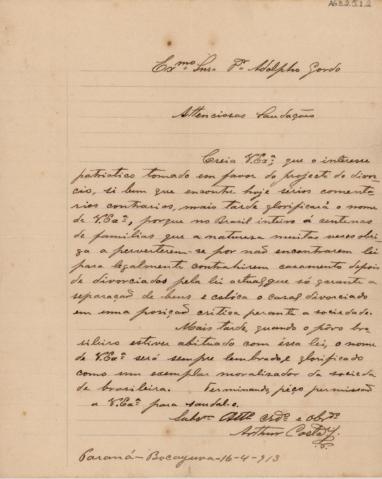 AG32.5.1.2
Exmo Snr. Dr. Adolpho Gordo
Attenciosas Saudações
Creia V.Exa, que o interesse
patriotico tomado em favor do projecto do divor-
cio, si bem que encontre hoje sérios comenta-
rios contrarios, mais tarde glorificará o nome
de V.Exa, porque no Brasil inteiro á sentenas
de familias que a naturesa muitas veses obri-
ga a perverterem-se por não encontrarem lei
para legalmente contrahirem casamento depois
de divorciados pela lei actual que só garante a
separação de bens e colóca o casal divorciado
em uma posição critica perante a sociedade.
Mais tarde, quando o pôvo bra-
sileiro estiver abituado com éssa lei, o nome
de V.Exa será sempre lembrado, e glorificado
como um exemplar moralizador da socieda
de brasileira. Terminando, péço permissão
a V.Exa para saudal-o.
Atto Crdo e Obrdo
Arthur Costa
Paraná-Bocayuva-16-4-913